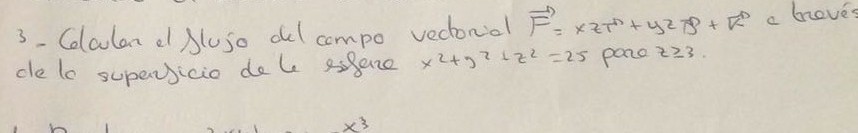 3 - Calcular el flujo del campo vectorial F⃗ = xz i⃗ + yz j⃗ + k⃗ a través
de la superficie de la esfera x²+y²+z² = 25 para z≥3.
x³